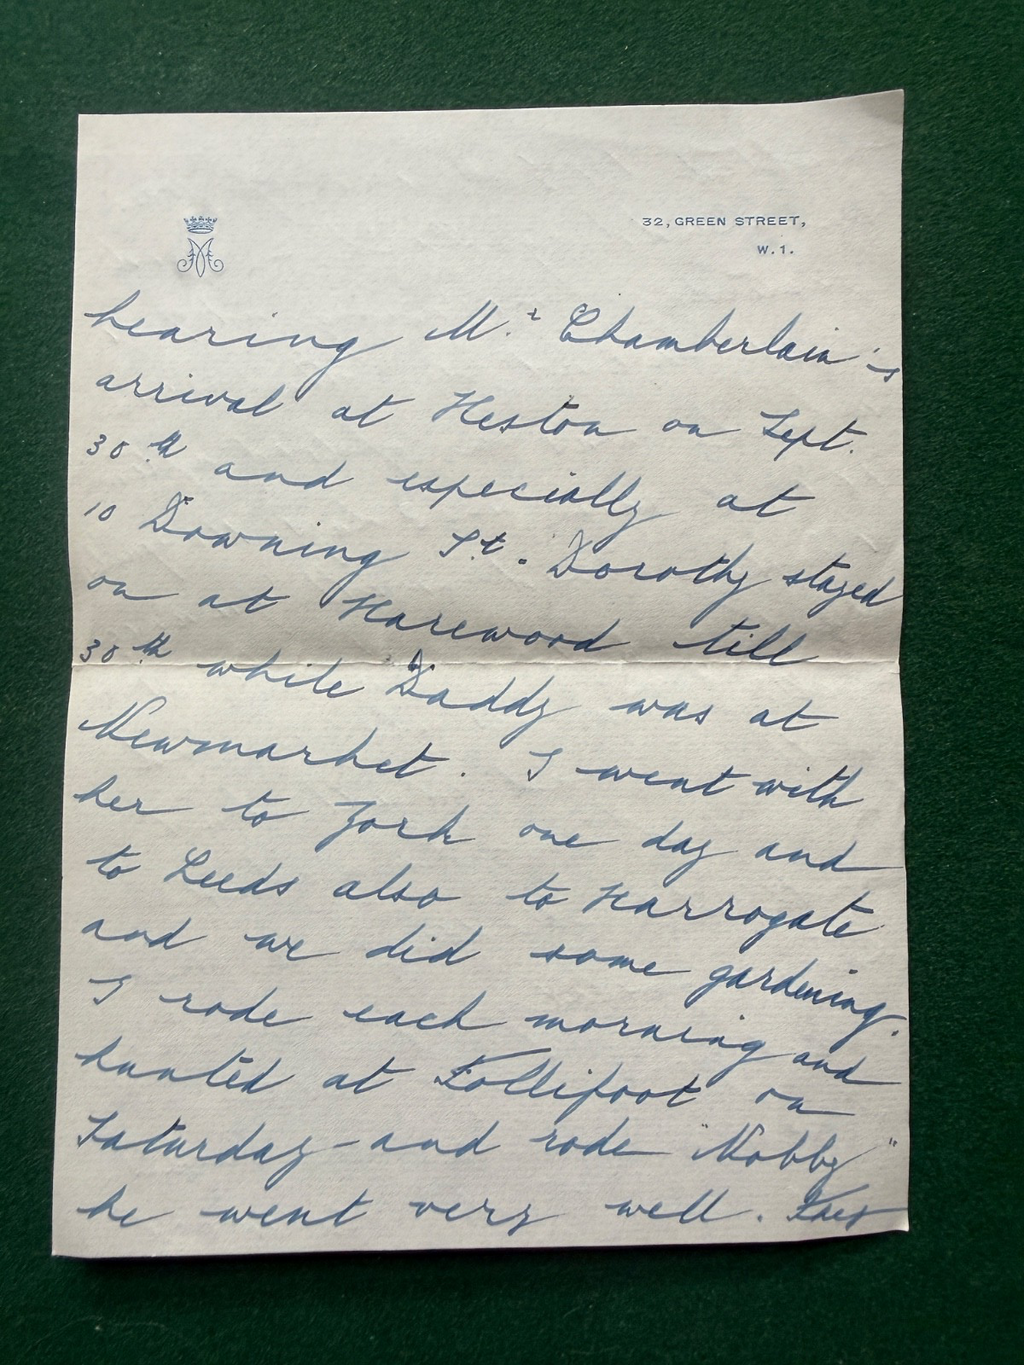 32, GREEN STREET,
W.1.
hearing Mr. Chamberlain's
arrival at Heston on Sept.
30th and especially at
10 Downing St. Dorothy stayed
on at Harewood till
30th while Daddy was at
Newmarket. I went with
her to York one day and
to Leeds also to Harrogate
and we did some gardening.
I rode each morning and
hunted at Follifoot on
Saturday - and rode "Nobby"
he went very well.